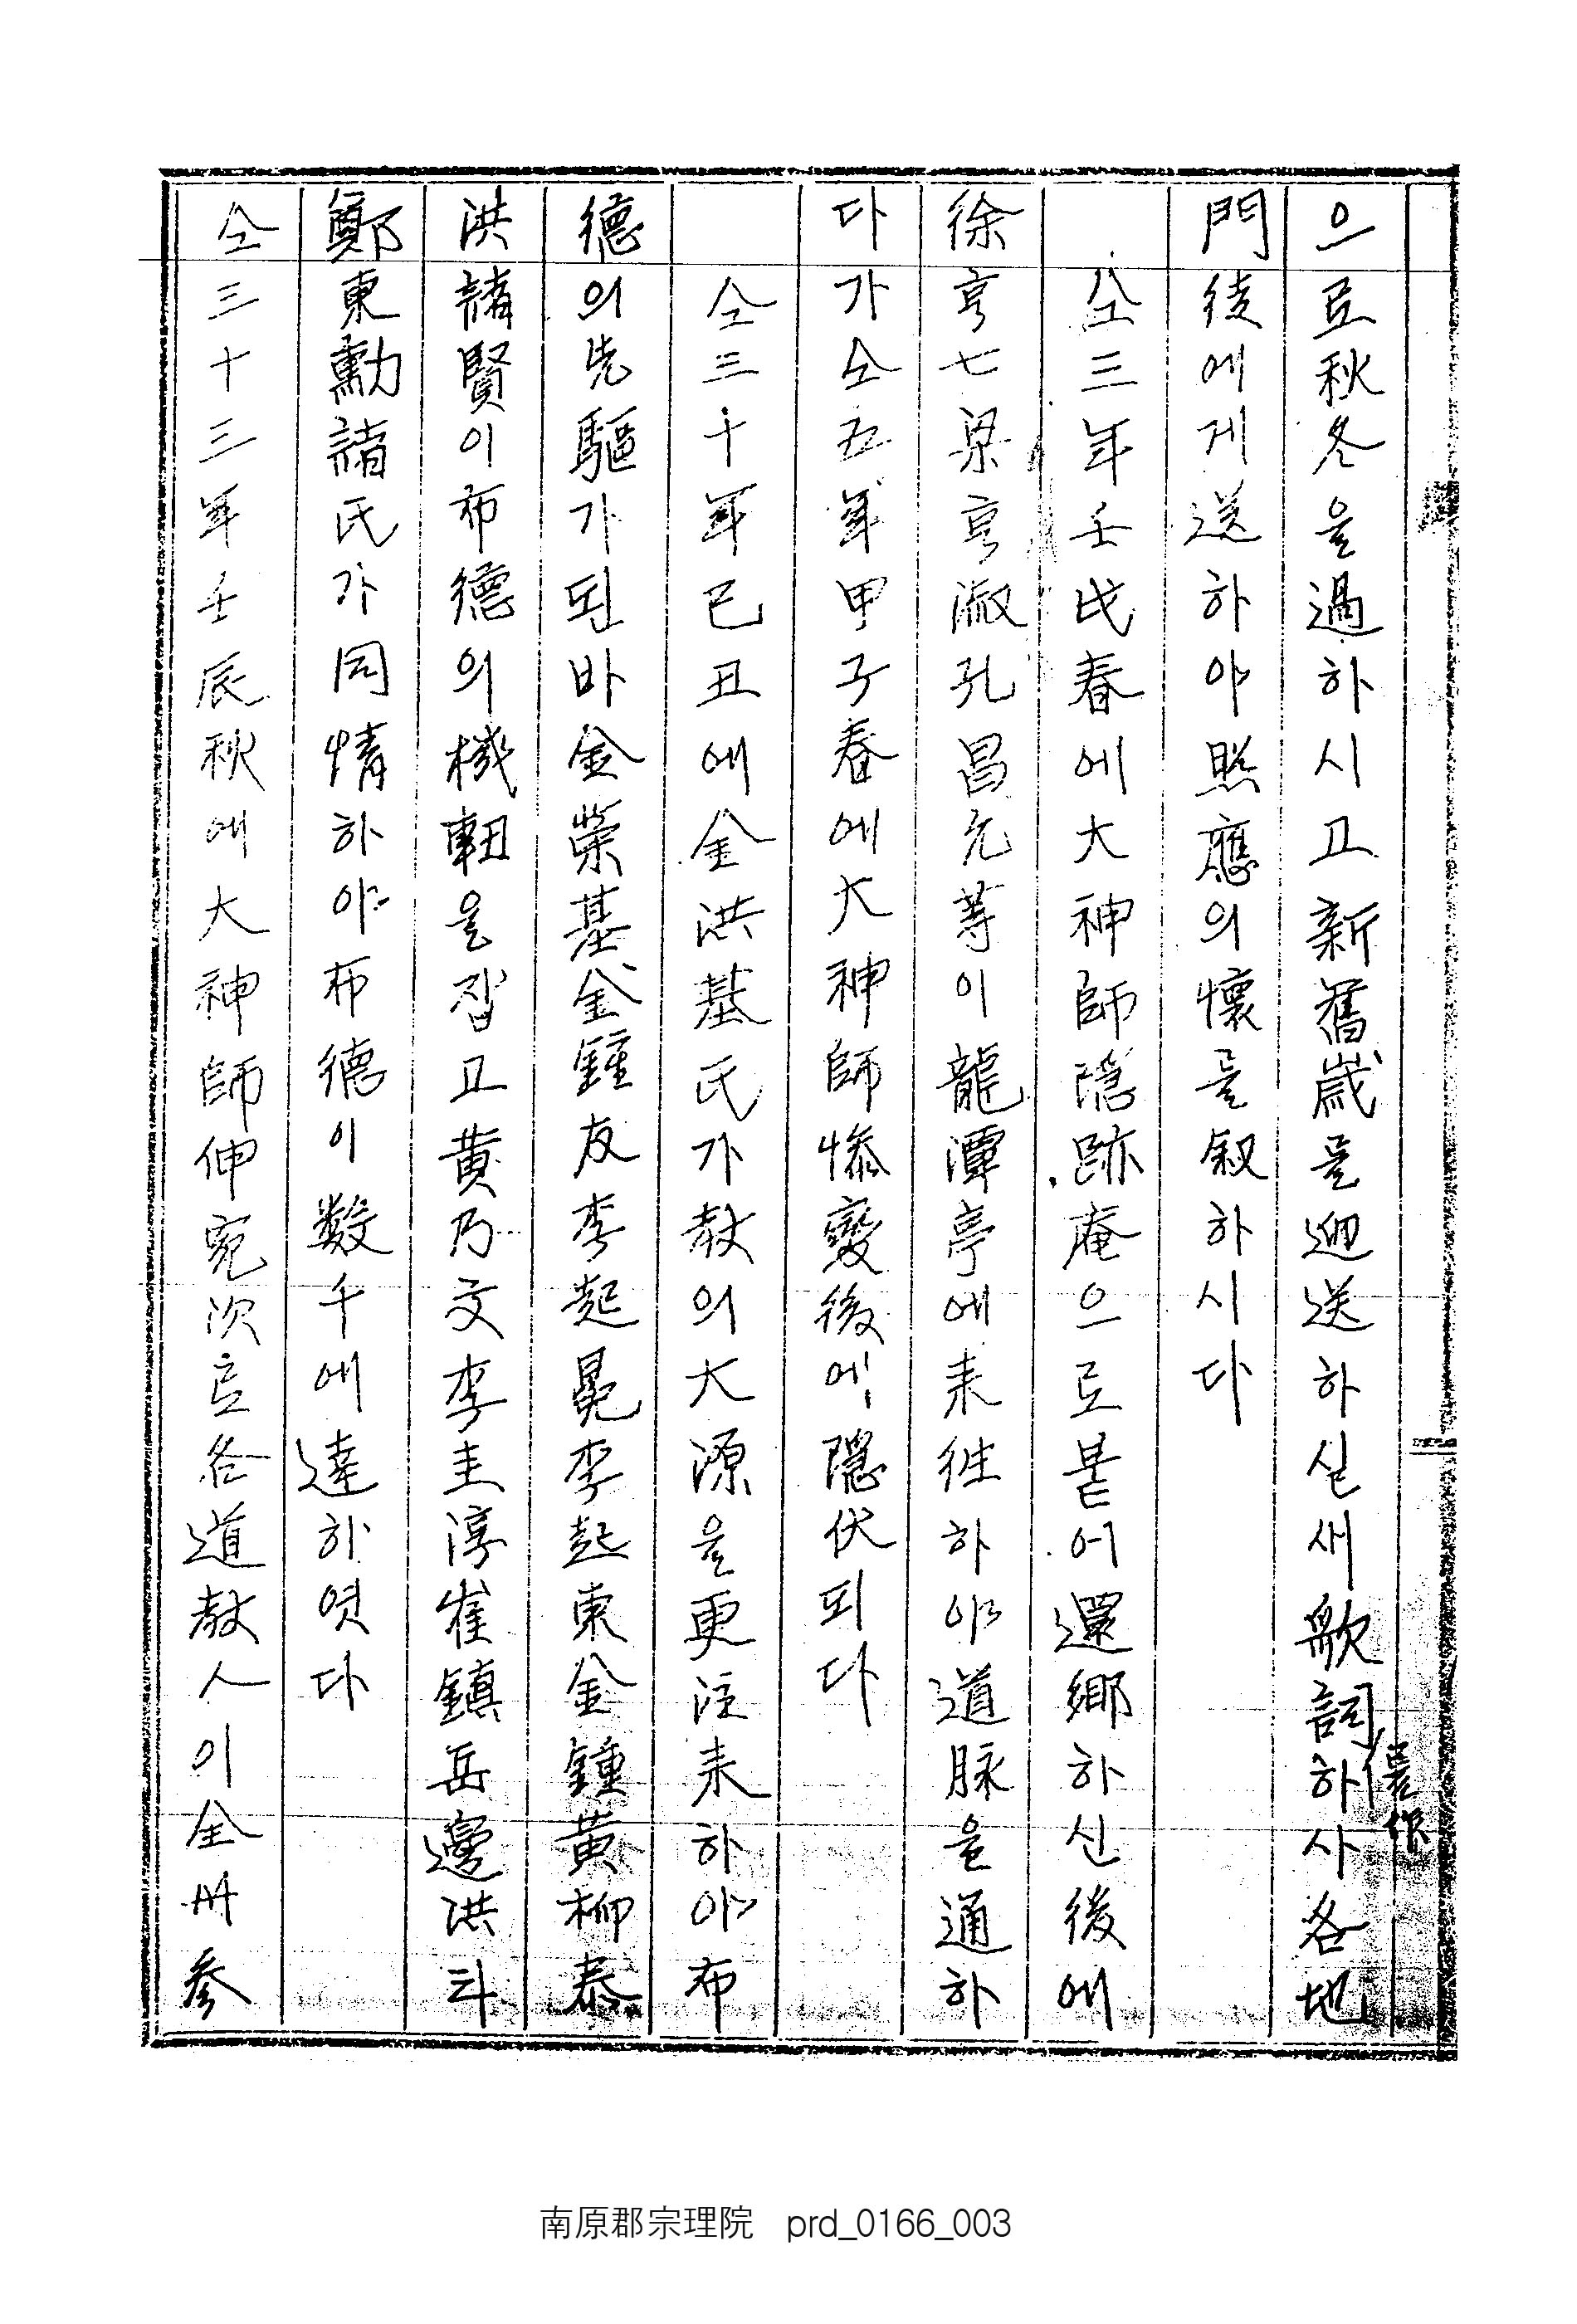 으로秋冬을過하시고新舊歲를迎送하실새歌詞를作하사各地
門徒에게送하야照應의懷를叙하시다
仝三年壬戌春에大神師隱跡庵으로붙어還鄕하신後에
徐亨七梁亨淑孔昌允等이龍潭亭에来往하야道脉을通하
다가仝五年甲子春에大神師慘變後에隱伏되다
仝三十年己丑에金洪基氏가教의大源을更注来하야布
德의先驅가된바金榮基金鍾友李起冕李起東金鍾黃柳泰
洪諸賢이布德의機軸을잡고黃乃文李圭淳崔鎭岳邊洪斗
鄭東勳諸氏가同情하야布德이数千에達하엿다
仝三十三年壬辰秋에大神師伸寃次로各道教人이全州參
南原郡宗理院 prd_0166_003